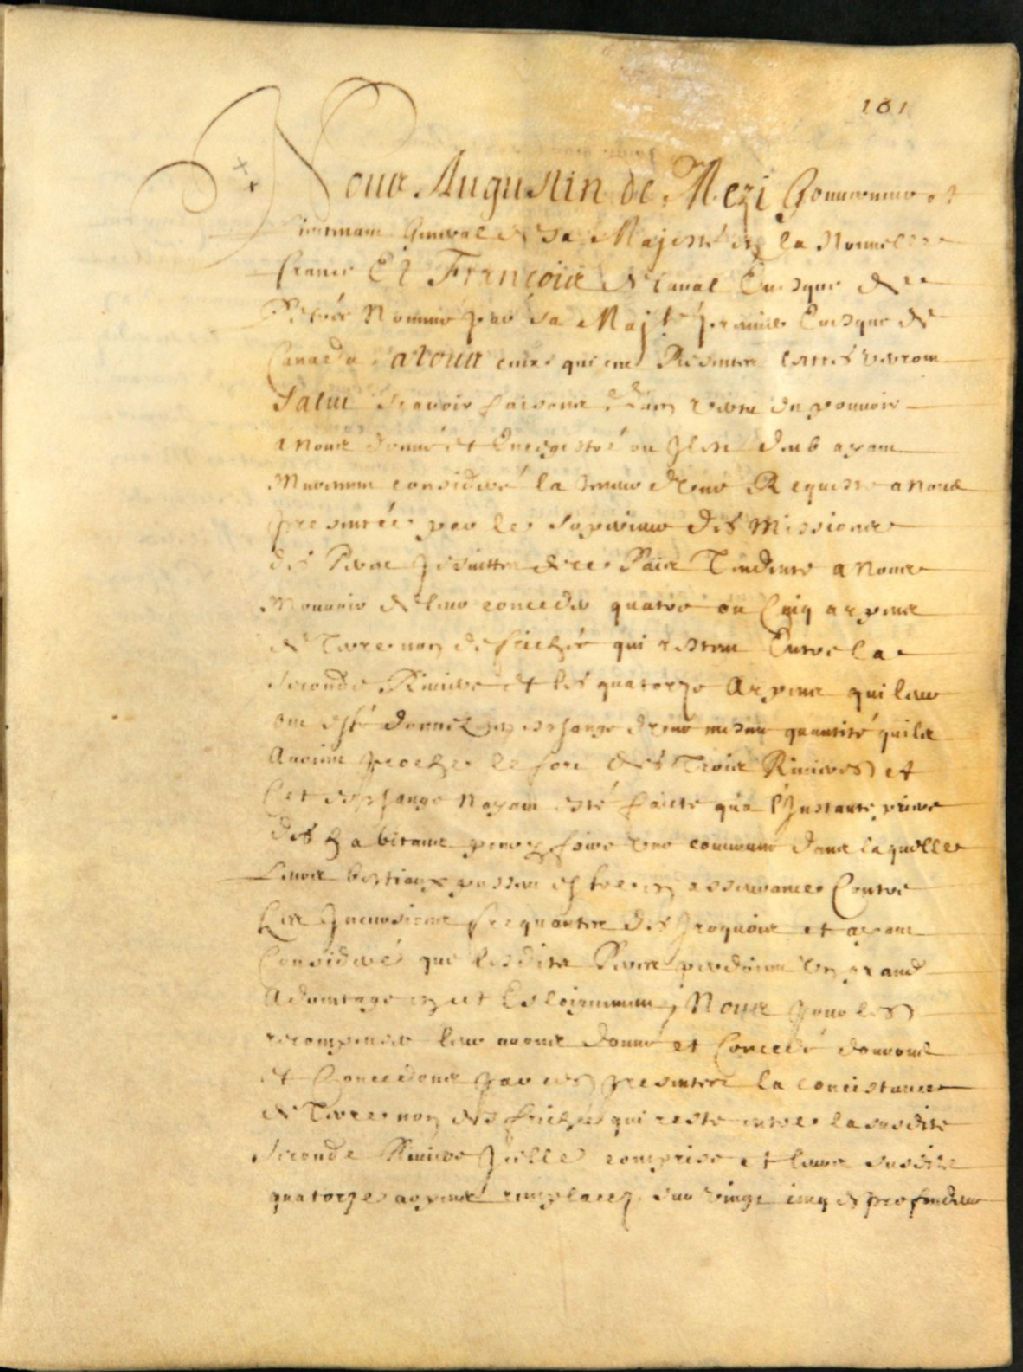 101
Nous Augustin de Mezi Gouverneur et
Lieutenant General de Sa Majesté en la Nouvelle
france Et François de Laval Evesque de
Petrée Nommé par Sa Maj.té premier Evesque de
Canada a tous ceux qui ces presentes lettres verront
Salut sçavoir faisons qu'en vertu du pouvoir
a Nous donné et Enregistré ou Il est deub ayant
Meurement consideré la teneur d'une Requeste a Nous
presentée par le Superieur des Missions
des Peres Jesuittes de ce Païs Tendente a Nous
Mouvoir de leur conceder quatre ou Cinq arpens
de Terre non defrichée qui restent Entre la
seconde Riviere et les quatorze Arpens qui leur
ont esté donnez en eschange d'une mesme quantité qu'ils
Avoient proche le fort des Trois Rivieres et
Cet eschange Nayant esté faicte qua l'Instante priere
des habitans pour faire une commune dans laquelle
Leurs bestiaux pussent estre en asseurance Contre
Les Incursions frequentes des Iroquois et ayant
Consideré que lesdits Peres perdoient un grand
Advantage en cet Esloignement, Nous pour les
recompenser leur avons donné et Concedé donnons
et Concedons par ces presentes la concistance
de Terre non desfrichée qui reste entre la susdite
seconde Riviere Icelle comprise et leurs susdits
quatorze arpens remplacez sur vingt cinq de profondeur